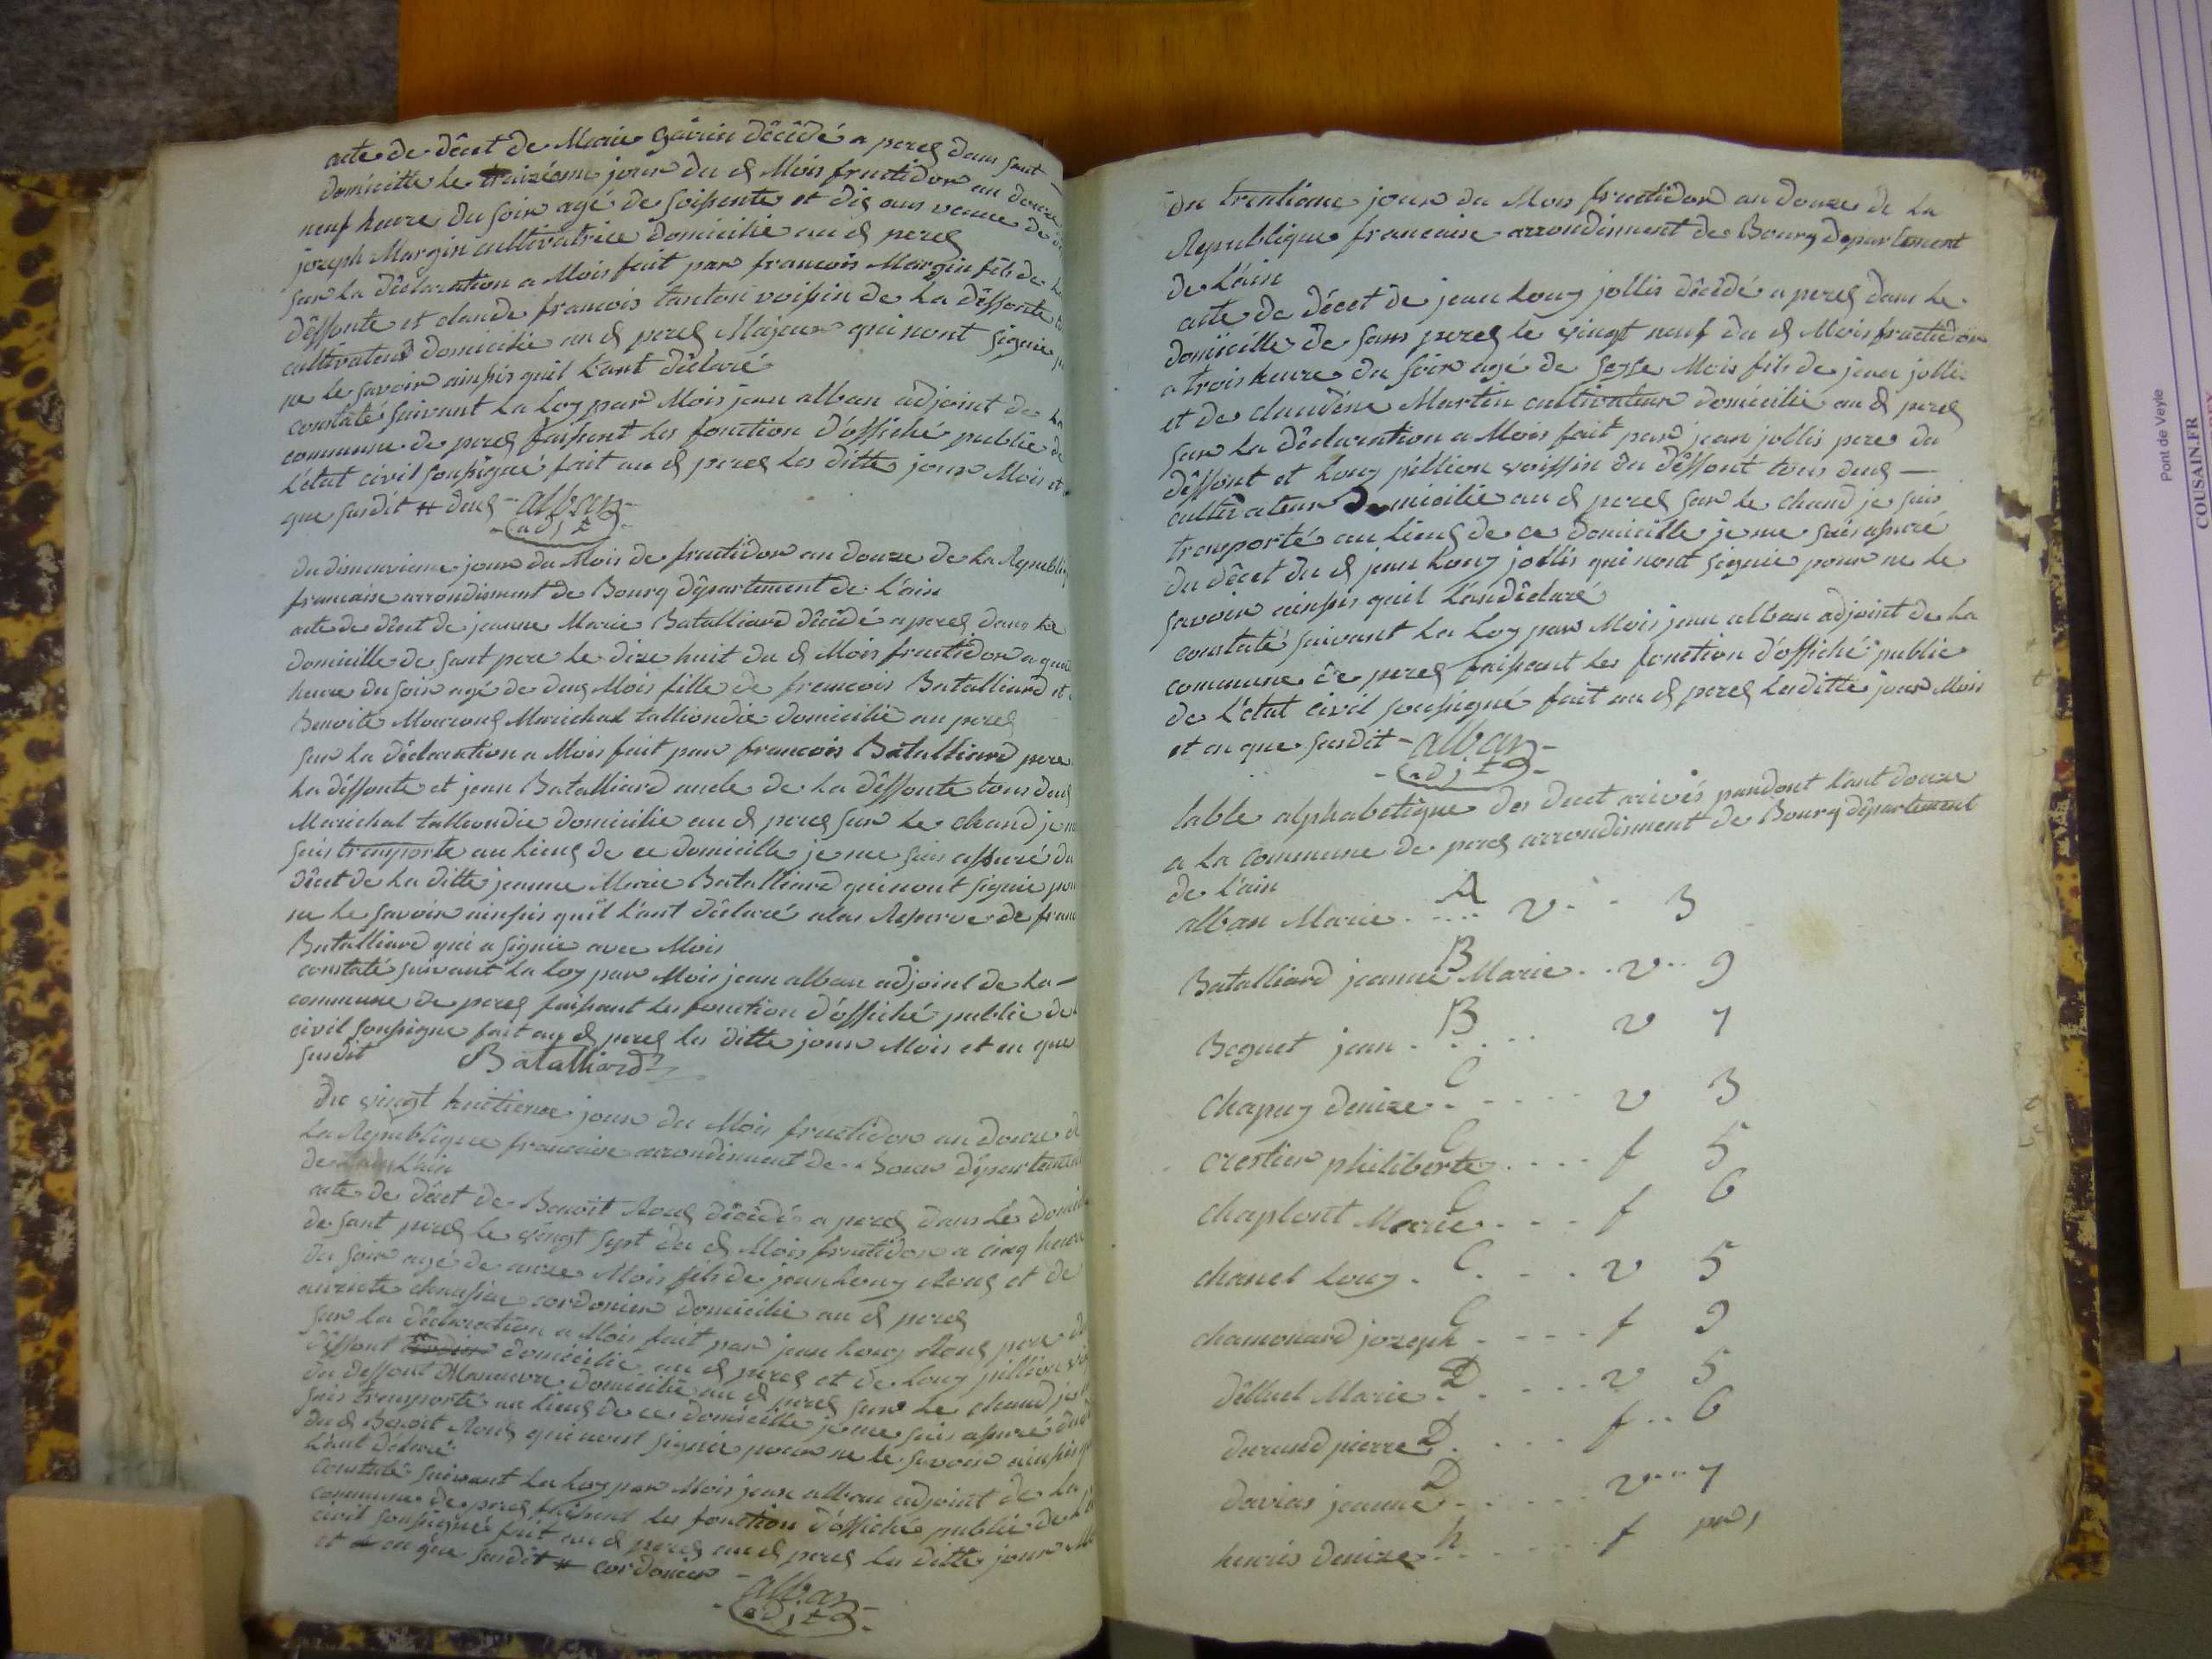 acte de décet de Marie Gavin décédé a perex dans sont
domicille le treizième jour du d Mois fructidor an douze
neuf heure du soir agé de soissente et dix ans veuve de
jozeph Margin cultivatrice domicilié au d perex
sur la déclaration a Mois fait par francois Margin fils de la
déffonte et claude francois tanton voissin de la déffonte
cultivateur domicilié au d perex Majeur qui nont signié
ne le savoir ainssis quil l'ant déclaré
constaté suivant la loy par Mois jean alban adjoint de la
commune de perex faissent les fonction d'offiché public de
l'état civil soussigné fait au d perex les ditte jour Mois et
que susdit # deux - alban -
adjt
du dixneuvieme jour du Mois de fructidor an douze de la Republiq
francaise arrondisment de Bourg département de l'ain
acte de décet de jeanne Marie Batalliard décédé a perex dans le
domicille de sant pere le dize huit du d Mois fructidor a
heure du soir agé de deux Mois fille de francois Batalliard et
Benoite Mouroux Marichal talliondié domicilié au perex
sur la déclaration a Mois fait par francois Batalliard pere
la déffonte et jean Batalliard oncle de la déffonte tous deux
Marichal talliondié domicilié au d perex sur le chand je
suis transporté au lieux de ce domicille je me suis assuré du
décet de la ditte jeanne Marie Batalliard qui nont signié pour
ne le savoir ainssis quil l'ant déclaré alas Reserve de
Batalliard qui a signié avec Mois
constaté suivant la loy par Mois jean alban adjoint de la
commune de perex faissant les fonction d'offiché public de
civil soussigne fait au d perex les ditte jour Mois et en que
susdit Batalliard
du vingt huitieme jour du Mois fructidor an douze d
la Republique francaise arrondisment de Bour départemen
de l'ain
acte de décet de Benoit Roux décédé a perex dans le
de sant perex le vingt sept du d Mois fructidor a cinq heure
du soir agé de onze Mois fils de jean louy Roux et de
cordonier domicilié au d perex
sur la déclaration a Mois fait par jean louy Roux pere d
déffont domicilié au d perex et de louy pillion
du deffont Maneuvre domicilié au d perex sur le chand je
suis transporté au lieux de ce domicille je me suis assuré du
du d Benoit Roux qui nont signié pour ne le savoir ainssis
l'ant déclaré
constaté suivant la loy par Mois jean alban adjoint de la
commune de perex faissent les fonction d'offiché public de l
civil soussigné fait au d perex au d perex les ditte jour M
et en que susdit # cordonier
- alban -
adjt
du trentieme jour du Mois fructidor an douze de la
Republique francaise arrondisment de Bourg departement
de l'ain
acte de décet de jean louy jollis décédé a perex dans le
domicille de sans perex le vingt neuf du d Mois fructidor
a trois heure du soir agé de sezse Mois fils de jean jollis
et de claudine Martin cultivateur domicilié au d perex
sur la déclaration a Mois fait par jean jollis pere du
déffont et louy pillion voissin du déffont tous deux
cultivateur domicilié au d perex sur le chand je suis
transporté au lieux de ce domicille je me suis assuré
du décet du d jean louy jollis qui nont signié pour ne le
savoir ainssis quil l'an déclaré
constaté suivant la loy par Mois jean alban adjoint de la
commune de perex faissant les fonction d'offiché public
de l'état civil soussigné fait au d perex les ditte jour Mois
et en que susdit - alban -
adjt
table alphabetique des decet arivés pandont l'ant douze
a la commune de perex arrondisment de Bourg département
de l'ain
A
alban Marie .... v - - 3
B
Batalliard jeanne Marie .. v .. 9
B
Boguet jean .... v 7
C
Chapuy denize .... v 3
C
crestier philiberte .... f 5
C
chaplont Marie .... f 6
C
chanel louy .... v 5
C
chamonard jozeph .... f 9
D
délluel Marie .... v 5
D
durand pierre .... f .. 6
D
davias jeanne .... v ... 7
h
henris denize .... f pr 1
Pont de Veyle
COUSAIN.FR